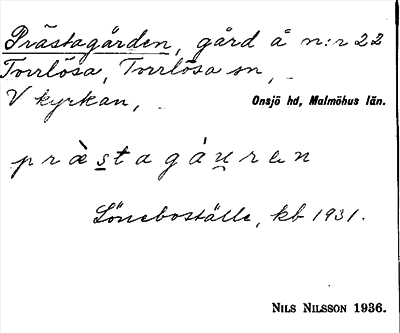 Prästagården, gård å n:r 22
Torrlösa, Torrlösa sn,
V kyrkan,
Onsjö hd, Malmöhus län.
præ̀stagáu̯ren
Löneboställe, kb 1931.
NILS NILSSON 1936.